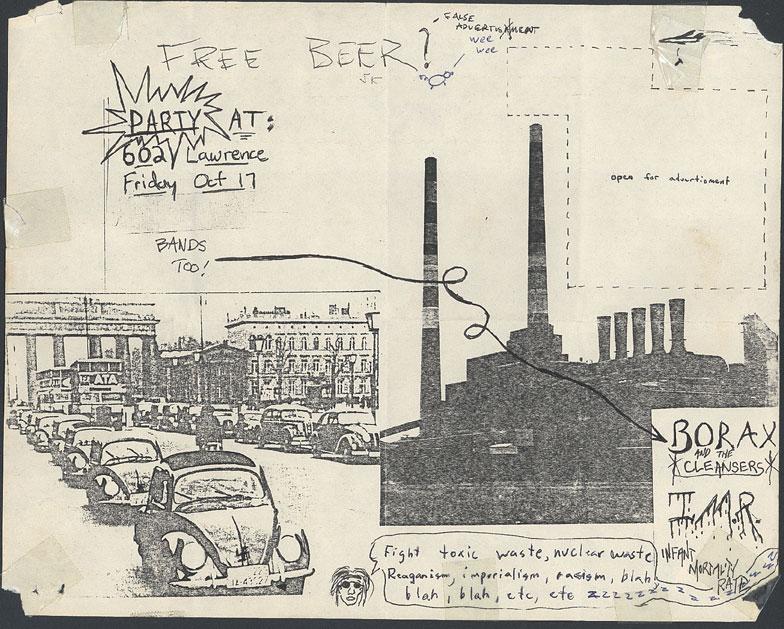 FREE BEER!
FALSE
ADVERTISMENT
wee
wee
PARTY AT:
602 Lawrence
Friday Oct 17
open for advertisment
BANDS
TOO!
ATA
BORAX
AND THE
CLEANSERS
I.M.R.
INFANT
MORTALITY
RATE
Fight toxic waste, nuclear waste
Reaganism, imperialism, racism, blah
blah, blah, etc, etc zzzzzzzzzzz